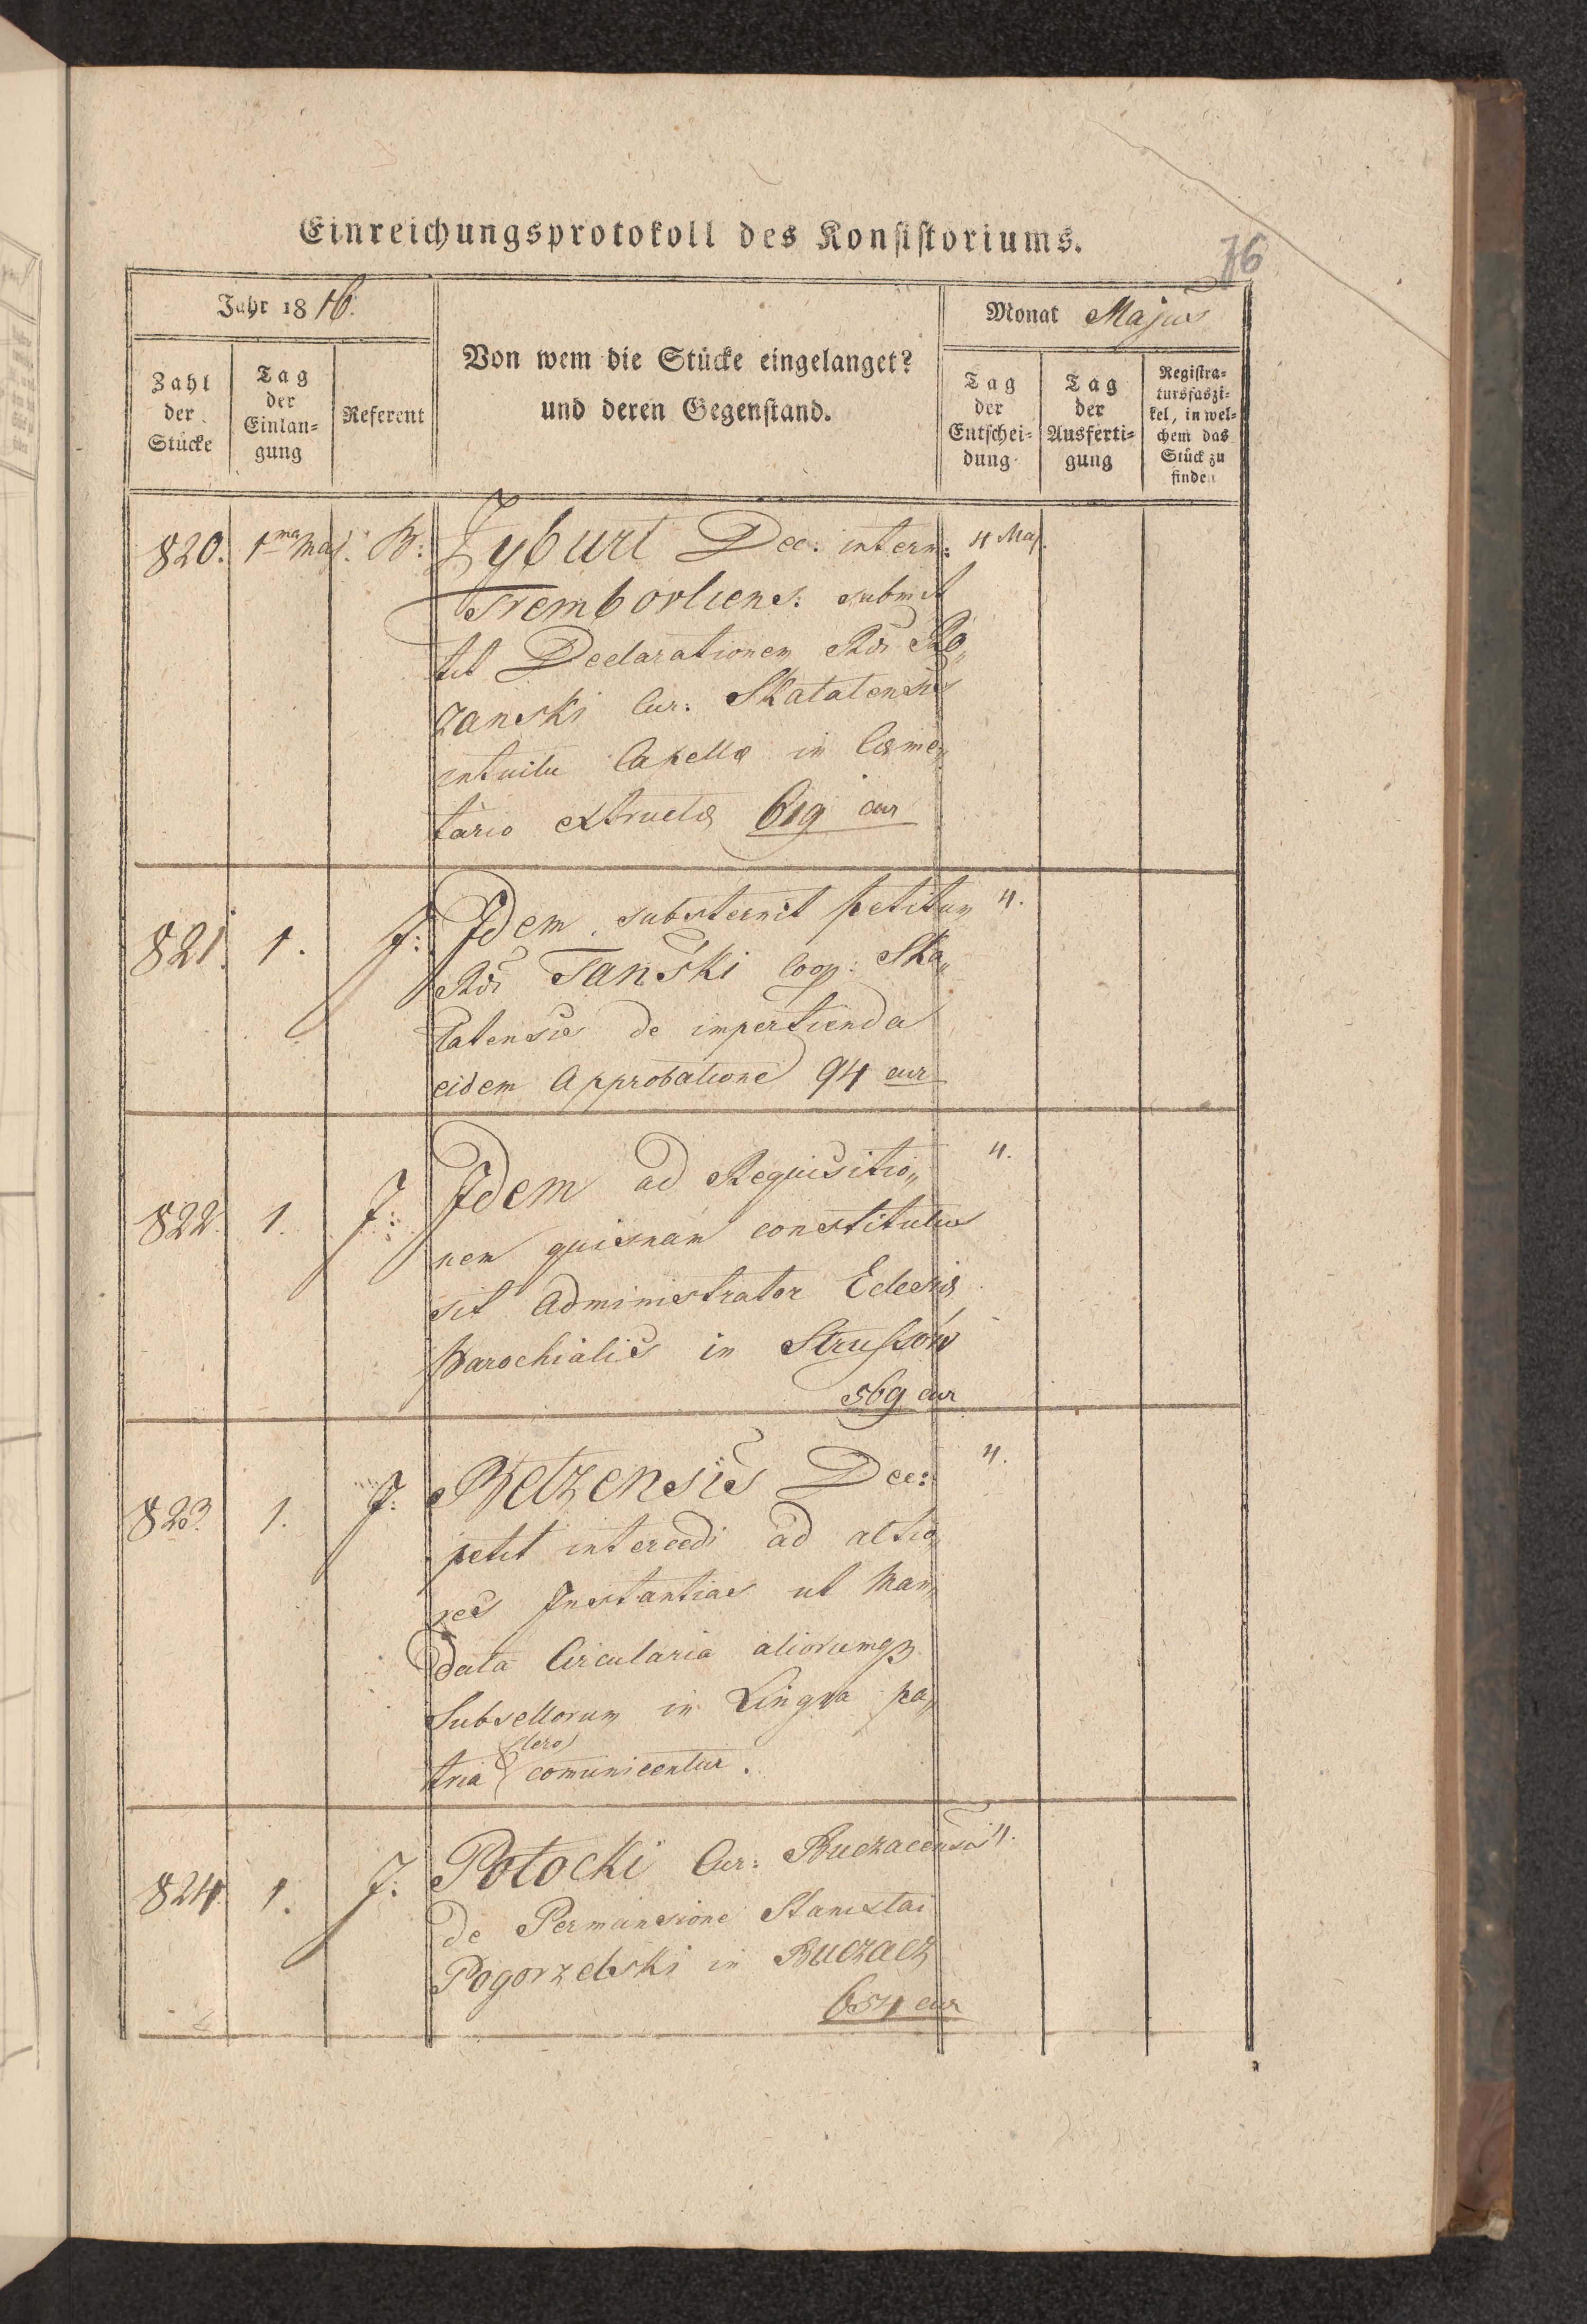 Einreichungsprotokoll des Konsistoriums.
76
Jahr 1816.
Monat Majus
Von wem die Stücke eingelanget?
und deren Gegenstand.
Zahl der Stücke
Tag der Einlan=gung
Referent
Tag der Entschei=dung
Tag der Ausferti=gung
Registra=tursfaszi=kel, in wel=chem das Stück zu finden
820. 1ma Maj. B: Zyburt Dec: interm: 4 Maj.
Tremborliens: submit
tit Declarationem Rdi Ro„
zanski Cur: Skalatensis
intuitu Capellæ in Cæme„
tario extructæ 619 cur
821. 1. J: Idem substernit petitum 4.
Rdi Tański Coop: Ska„
latensis de impertienda
eidem Approbatione 94 cur
822. 1. J: Idem ad Requisitio„ 4.
nem quisnam constitutus
sit Administrator Eclesiæ
Parochialis in Strussów
569 cur
823. 1. J: Belzensis Dec: 4.
petit intercedi ad altio„
res Instantias ut Man„
data Circularia aliorumqz
Subsellorum in Lingva pa„
(Clero)
tria comunicentur.
824. 1. J: Potocki Cur: Buczacensis 4.
de Permansione Stanislai
Pogorzelski in Buczacz
654 cur